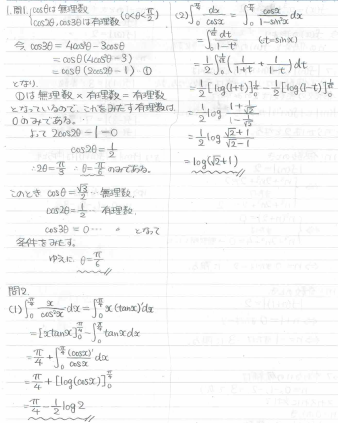 1. 問1. { cosθは無理数
cos2θ, cos3θは有理数 (0<θ<π/2)
今, cos3θ = 4cos³θ-3cosθ
= cosθ(4cos²θ-3)
= cosθ(2cos2θ-1) ①
となり
①は 無理数 × 有理数 = 有理数
となっているので, これをみたす有理数は
0のみである.
よって 2cos2θ-1=0
cos2θ=1/2
∴2θ=π/3 ∴θ=π/6 のみである.
このとき cosθ=√3/2 … 無理数.
cos2θ=1/2 … 有理数.
cos3θ=0 … 〃 となって
条件をみたす.
ゆえに θ=π/6
問2.
(1) ∫₀^{π/4} x/cos²x dx = ∫₀^{π/4} x(tanx)'dx
= [xtanx]₀^{π/4} - ∫₀^{π/4} tanx dx
= π/4 + ∫₀^{π/4} (cosx)'/cosx dx
= π/4 + [log(cosx)]₀^{π/4}
= π/4 - 1/2 log2
(2) ∫₀^{π/4} dx/cosx = ∫₀^{π/4} cosx/(1-sin²x) dx
= ∫₀^{1/√2} dt/(1-t²) (∵t=sinx)
= 1/2 ∫₀^{1/√2} (1/(1+t) + 1/(1-t)) dt
= 1/2 [log(1+t)]₀^{1/√2} - 1/2 [log(1-t)]₀^{1/√2}
= 1/2 log (1+1/√2)/(1-1/√2)
= 1/2 log (√2+1)/(√2-1)
= log(√2+1)